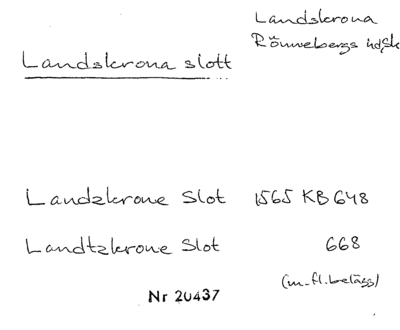 Landskrona
Rönnebergs hd, Sk
Landskrona slott
Landzkrone Slot 1565 KB 648
Landtzkrone Slot 668
(m.fl. belägg)
Nr 20437